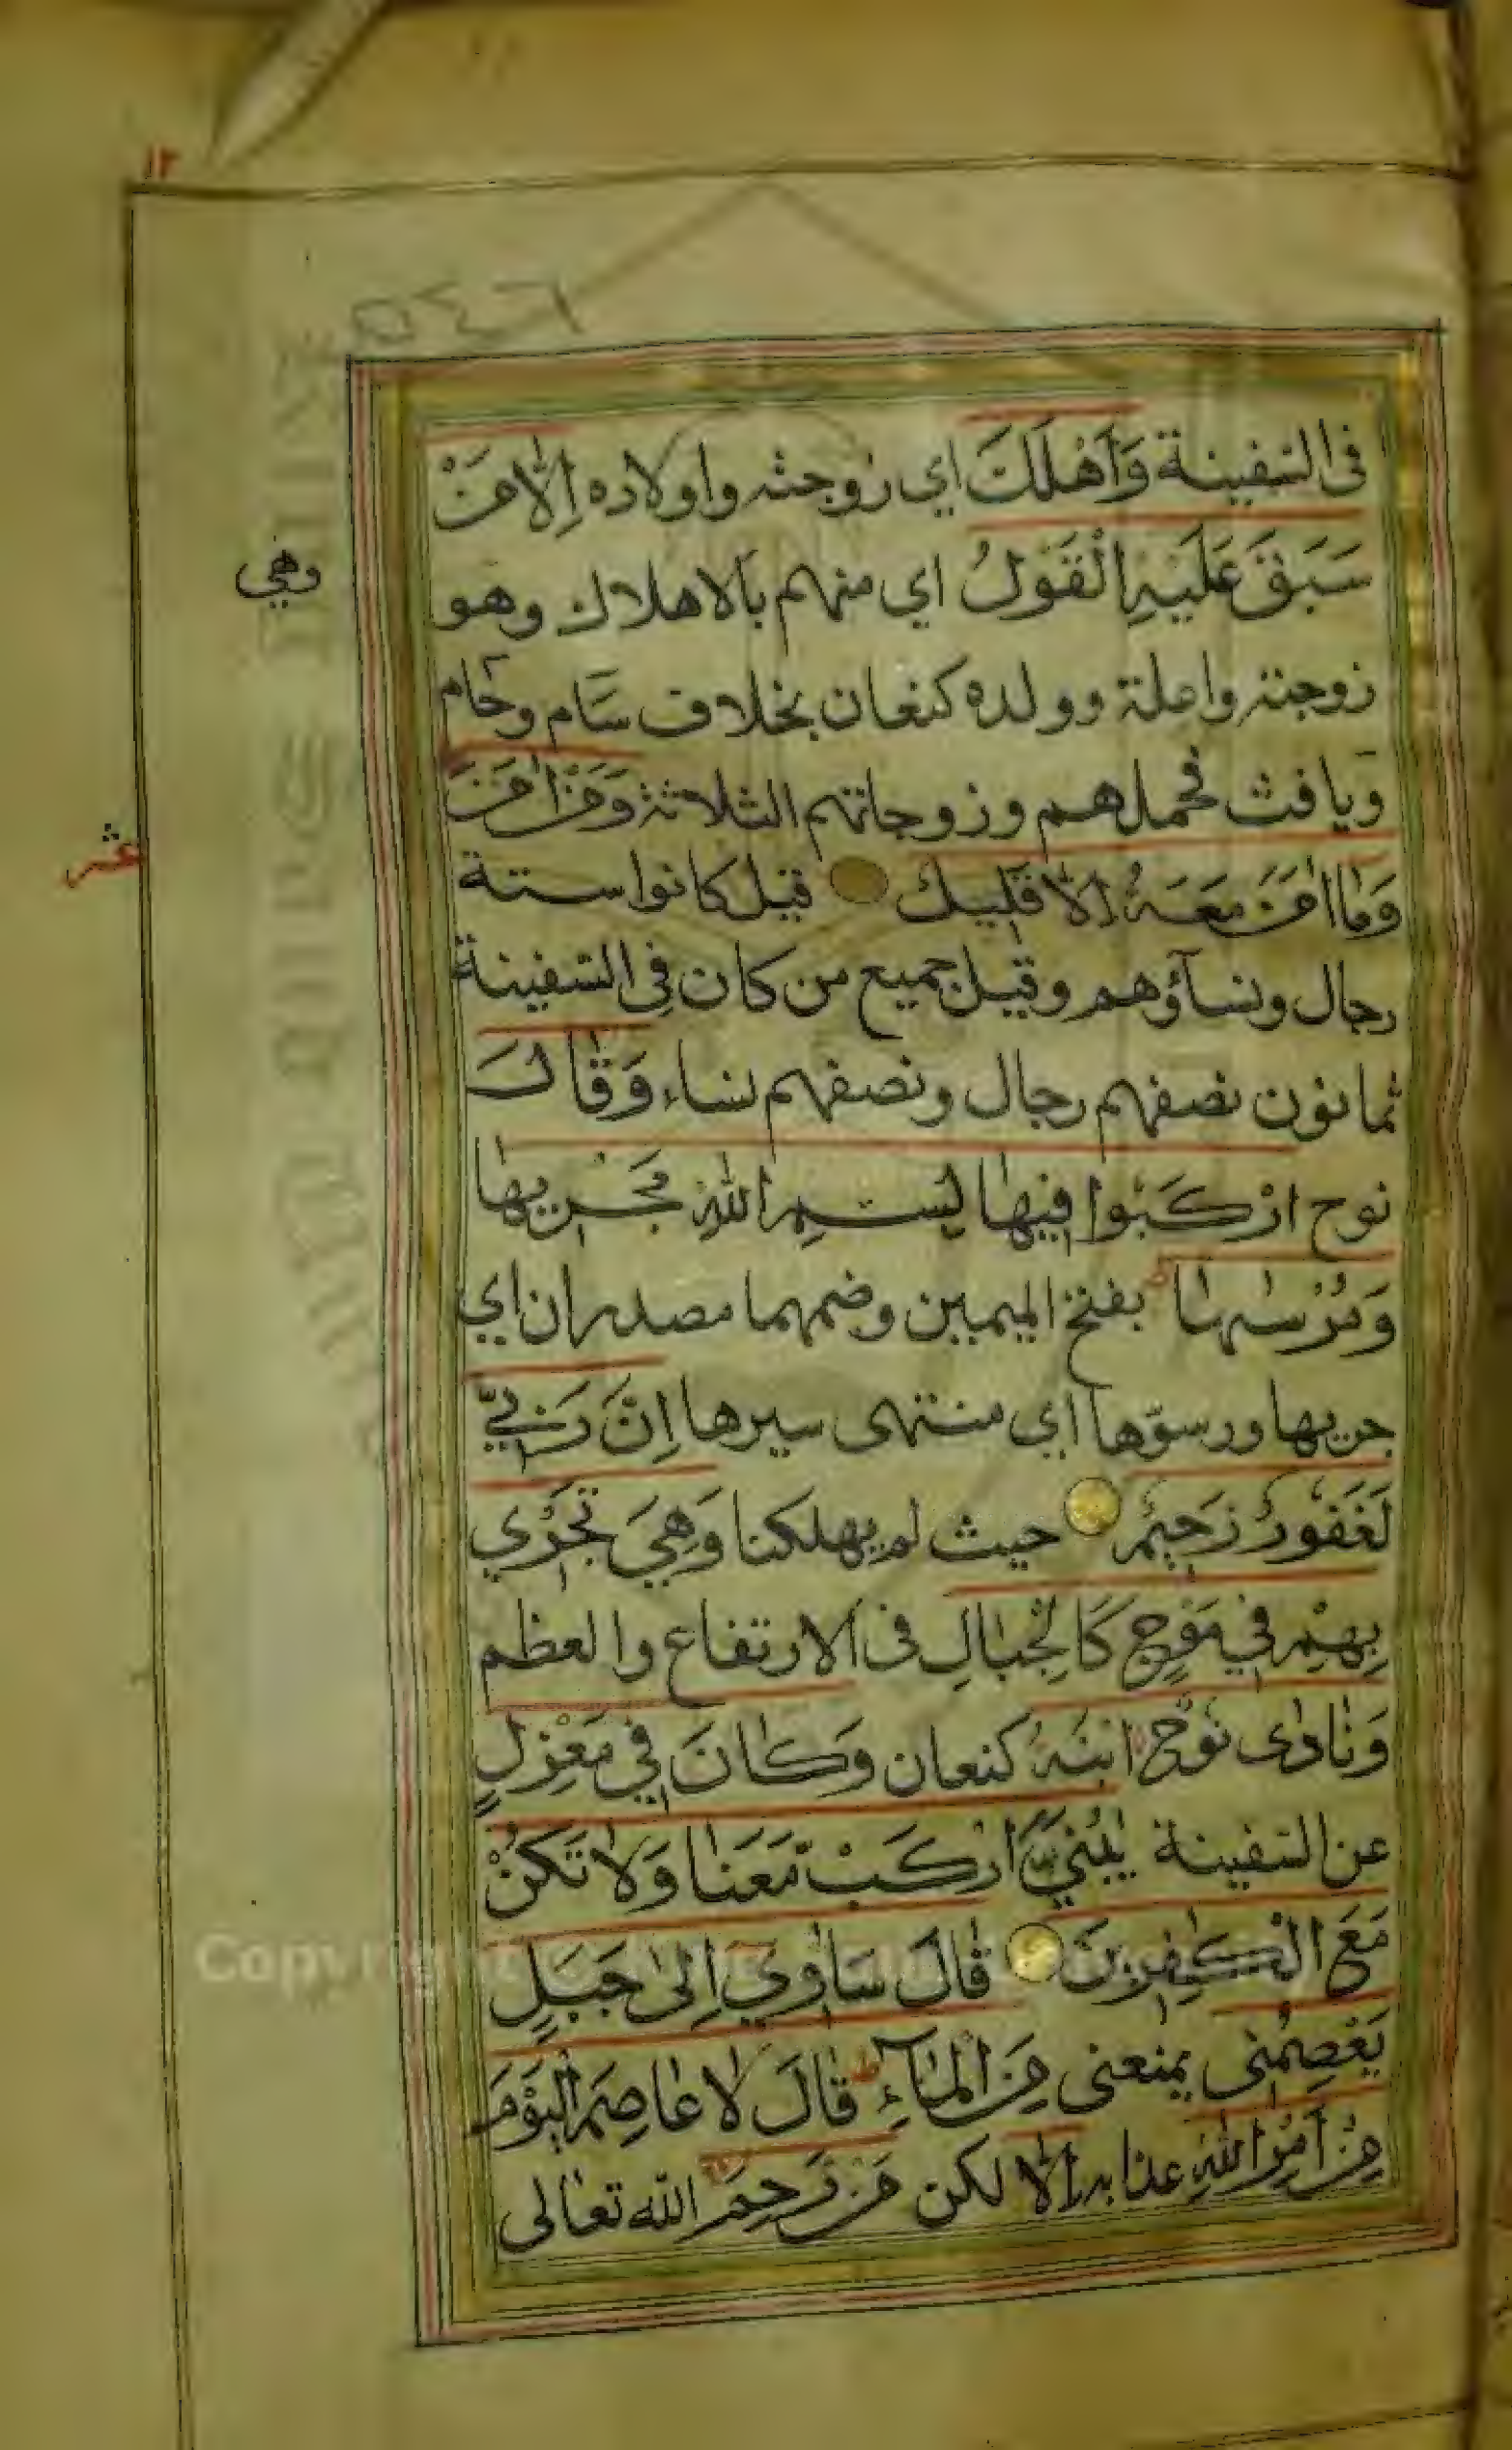 ١٢
٥٤٦
فى السفينة وَاَهْلَكَ اي زوجته واولاده اِلَّا مَنْ
سَبَقَ عَلَيْهِ الْقَوْلُ اي منهم بالاهلاك وهو
وهي
زوجته واعلة وولده كنعان بخلاف سام وحام
ويافث فحملهم وزوجاتهم الثلاثة وَمَنْ اٰمَنَ
وَمَا اٰمَنَ مَعَهُ اِلَّا قَلِيلٌ قيل كانوا ستة
عشر
رجال ونسآؤهم وقيل جميع من كان فى السفينة
ثمانون نصفهم رجال ونصفهم نساء وَقَالَ
نوح ارْكَبُوا فِيهَا بِسْمِ اللّٰهِ مَجْرٰيهَا
وَمُرْسٰيهَا ط بفتح الميمين وضمهما مصدران اي
جريها ورسوّها اي منتهى سيرها اِنَّ رَبِّي
لَغَفُورٌ رَحِيمٌ حيث لم يهلكنا وَهِيَ تَجْرِي
بِهِمْ فِي مَوْجٍ كَالْجِبَالِ فى الارتفاع والعظم
وَنَادٰى نُوحٌ ابْنَهُ كنعان وَكَانَ فِي مَعْزِلٍ
عن السفينة يٰبُنَيَّ ارْكَبْ مَعَنَا وَلَا تَكُنْ
مَعَ الْكٰفِرِينَ قَالَ سَاٰوِي اِلٰى جَبَلٍ
يَعْصِمُنِي يمنعنى مِنَ الْمَآءِ ط قَالَ لَا عَاصِمَ الْيَوْمَ
مِنْ اَمْرِ اللّٰهِ عذابه اِلَّا لكن مَنْ رَحِمَ الله تعالى